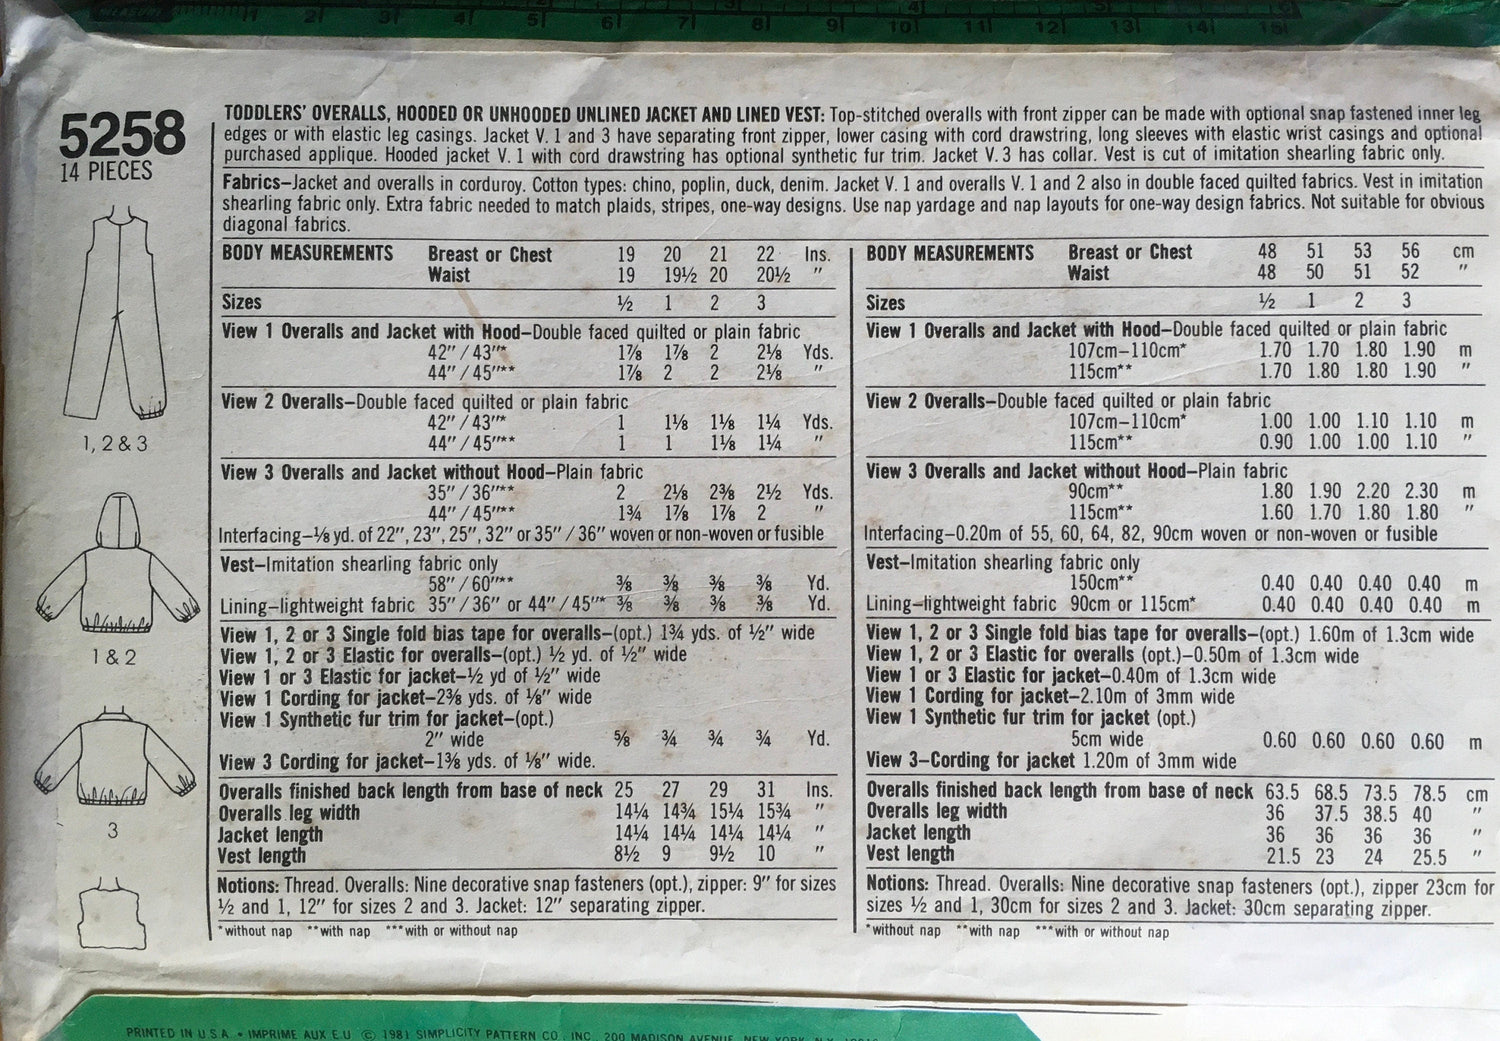 MEASURE 1 2 3 4 5 6 7 8 9 10 11 12 13 14 15
5258
14 PIECES
TODDLERS' OVERALLS, HOODED OR UNHOODED UNLINED JACKET AND LINED VEST: Top-stitched overalls with front zipper can be made with optional snap fastened inner leg
edges or with elastic leg casings. Jacket V. 1 and 3 have separating front zipper, lower casing with cord drawstring, long sleeves with elastic wrist casings and optional
purchased applique. Hooded jacket V. 1 with cord drawstring has optional synthetic fur trim. Jacket V. 3 has collar. Vest is cut of imitation shearling fabric only.
Fabrics–Jacket and overalls in corduroy. Cotton types: chino, poplin, duck, denim. Jacket V. 1 and overalls V. 1 and 2 also in double faced quilted fabrics. Vest in imitation
shearling fabric only. Extra fabric needed to match plaids, stripes, one-way designs. Use nap yardage and nap layouts for one-way design fabrics. Not suitable for obvious
diagonal fabrics.
BODY MEASUREMENTS Breast or Chest 19 20 21 22 Ins.
Waist 19 19½ 20 20½ "
Sizes ½ 1 2 3
View 1 Overalls and Jacket with Hood–Double faced quilted or plain fabric
42"/43"* 1⅞ 1⅞ 2 2⅛ Yds.
44"/45"** 1⅞ 2 2 2⅛ "
View 2 Overalls–Double faced quilted or plain fabric
42"/43"* 1 1⅛ 1⅛ 1¼ Yds.
44"/45"** 1 1 1⅛ 1¼ "
View 3 Overalls and Jacket without Hood–Plain fabric
35"/36"** 2 2⅛ 2⅜ 2½ Yds.
44"/45"** 1¾ 1⅞ 1⅞ 2 "
Interfacing–⅛ yd. of 22", 23", 25", 32" or 35"/36" woven or non-woven or fusible
Vest–Imitation shearling fabric only
58"/60"** ⅜ ⅜ ⅜ ⅜ Yd.
Lining–lightweight fabric 35"/36" or 44"/45"* ⅜ ⅜ ⅜ ⅜ Yd.
View 1, 2 or 3 Single fold bias tape for overalls–(opt.) 1¾ yds. of ½" wide
View 1, 2 or 3 Elastic for overalls–(opt.) ½ yd. of ½" wide
View 1 or 3 Elastic for jacket–½ yd of ½" wide
View 1 Cording for jacket–2⅜ yds. of ⅛" wide
View 1 Synthetic fur trim for jacket–(opt.)
2" wide ⅝ ¾ ¾ ¾ Yd.
View 3 Cording for jacket–1⅜ yds. of ⅛" wide.
Overalls finished back length from base of neck 25 27 29 31 Ins.
Overalls leg width 14¼ 14¾ 15¼ 15¾ "
Jacket length 14¼ 14¼ 14¼ 14¼ "
Vest length 8½ 9 9½ 10 "
Notions: Thread. Overalls: Nine decorative snap fasteners (opt.), zipper: 9" for sizes
½ and 1, 12" for sizes 2 and 3. Jacket: 12" separating zipper.
*without nap **with nap ***with or without nap
BODY MEASUREMENTS Breast or Chest 48 51 53 56 cm
Waist 48 50 51 52 "
Sizes ½ 1 2 3
View 1 Overalls and Jacket with Hood–Double faced quilted or plain fabric
107cm–110cm* 1.70 1.70 1.80 1.90 m
115cm** 1.70 1.80 1.80 1.90 "
View 2 Overalls–Double faced quilted or plain fabric
107cm–110cm* 1.00 1.00 1.10 1.10 m
115cm** 0.90 1.00 1.00 1.10 "
View 3 Overalls and Jacket without Hood–Plain fabric
90cm** 1.80 1.90 2.20 2.30 m
115cm** 1.60 1.70 1.80 1.80 "
Interfacing–0.20m of 55, 60, 64, 82, 90cm woven or non-woven or fusible
Vest–Imitation shearling fabric only
150cm** 0.40 0.40 0.40 0.40 m
Lining–lightweight fabric 90cm or 115cm* 0.40 0.40 0.40 0.40 m
View 1, 2 or 3 Single fold bias tape for overalls–(opt.) 1.60m of 1.3cm wide
View 1, 2 or 3 Elastic for overalls (opt.)–0.50m of 1.3cm wide
View 1 or 3 Elastic for jacket–0.40m of 1.3cm wide
View 1 Cording for jacket–2.10m of 3mm wide
View 1 Synthetic fur trim for jacket (opt.)
5cm wide 0.60 0.60 0.60 0.60 m
View 3–Cording for jacket 1.20m of 3mm wide
Overalls finished back length from base of neck 63.5 68.5 73.5 78.5 cm
Overalls leg width 36 37.5 38.5 40 "
Jacket length 36 36 36 36 "
Vest length 21.5 23 24 25.5 "
Notions: Thread. Overalls: Nine decorative snap fasteners (opt.), zipper 23cm for
sizes ½ and 1, 30cm for sizes 2 and 3. Jacket: 30cm separating zipper.
*without nap **with nap ***with or without nap
1, 2 & 3
1 & 2
3
PRINTED IN U.S.A. • IMPRIME AUX E.U © 1981 SIMPLICITY PATTERN CO. INC. 200 MADISON AVENUE, NEW YORK, N.Y.